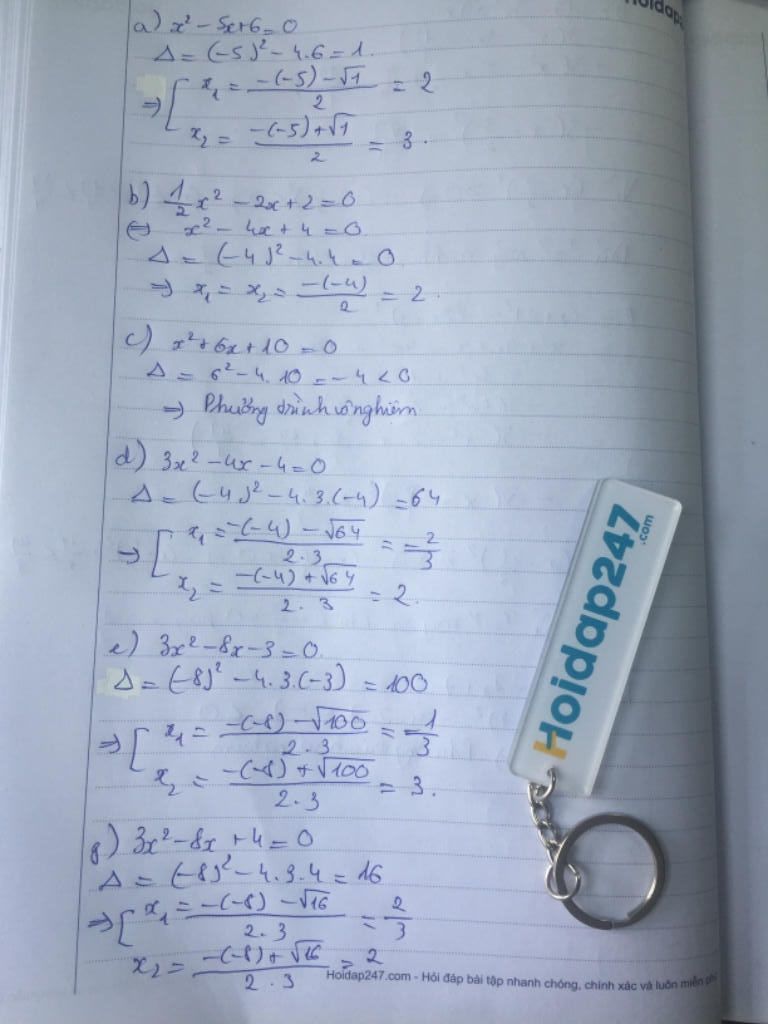 Hoidap
a) x² - 5x + 6 = 0
Δ = (-5)² - 4.6 = 1.
⇒ [ x₁ = (-(-5) - √1)/2 = 2
x₂ = (-(-5) + √1)/2 = 3.
b) 1/2 x² - 2x + 2 = 0
⇔ x² - 4x + 4 = 0
Δ = (-4)² - 4.4 = 0
⇒ x₁ = x₂ = -(-4)/2 = 2.
c) x² + 6x + 10 = 0
Δ = 6² - 4.10 = -4 < 0
⇒ Phương trình vô nghiệm
d) 3x² - 4x - 4 = 0
Δ = (-4)² - 4.3.(-4) = 64
⇒ [ x₁ = (-(-4) - √64)/(2.3) = -2/3
x₂ = (-(-4) + √64)/(2.3) = 2.
e) 3x² - 8x - 3 = 0.
Δ = (-8)² - 4.3.(-3) = 100
⇒ [ x₁ = (-(-8) - √100)/(2.3) = -1/3
x₂ = (-(-8) + √100)/(2.3) = 3.
g) 3x² - 8x + 4 = 0
Δ = (-8)² - 4.3.4 = 16
⇒ [ x₁ = (-(-8) - √16)/(2.3) = 2/3
x₂ = (-(-8) + √16)/(2.3) = 2
Hoidap247.com
Hoidap247.com - Hỏi đáp bài tập nhanh chóng, chính xác và luôn miễn phí